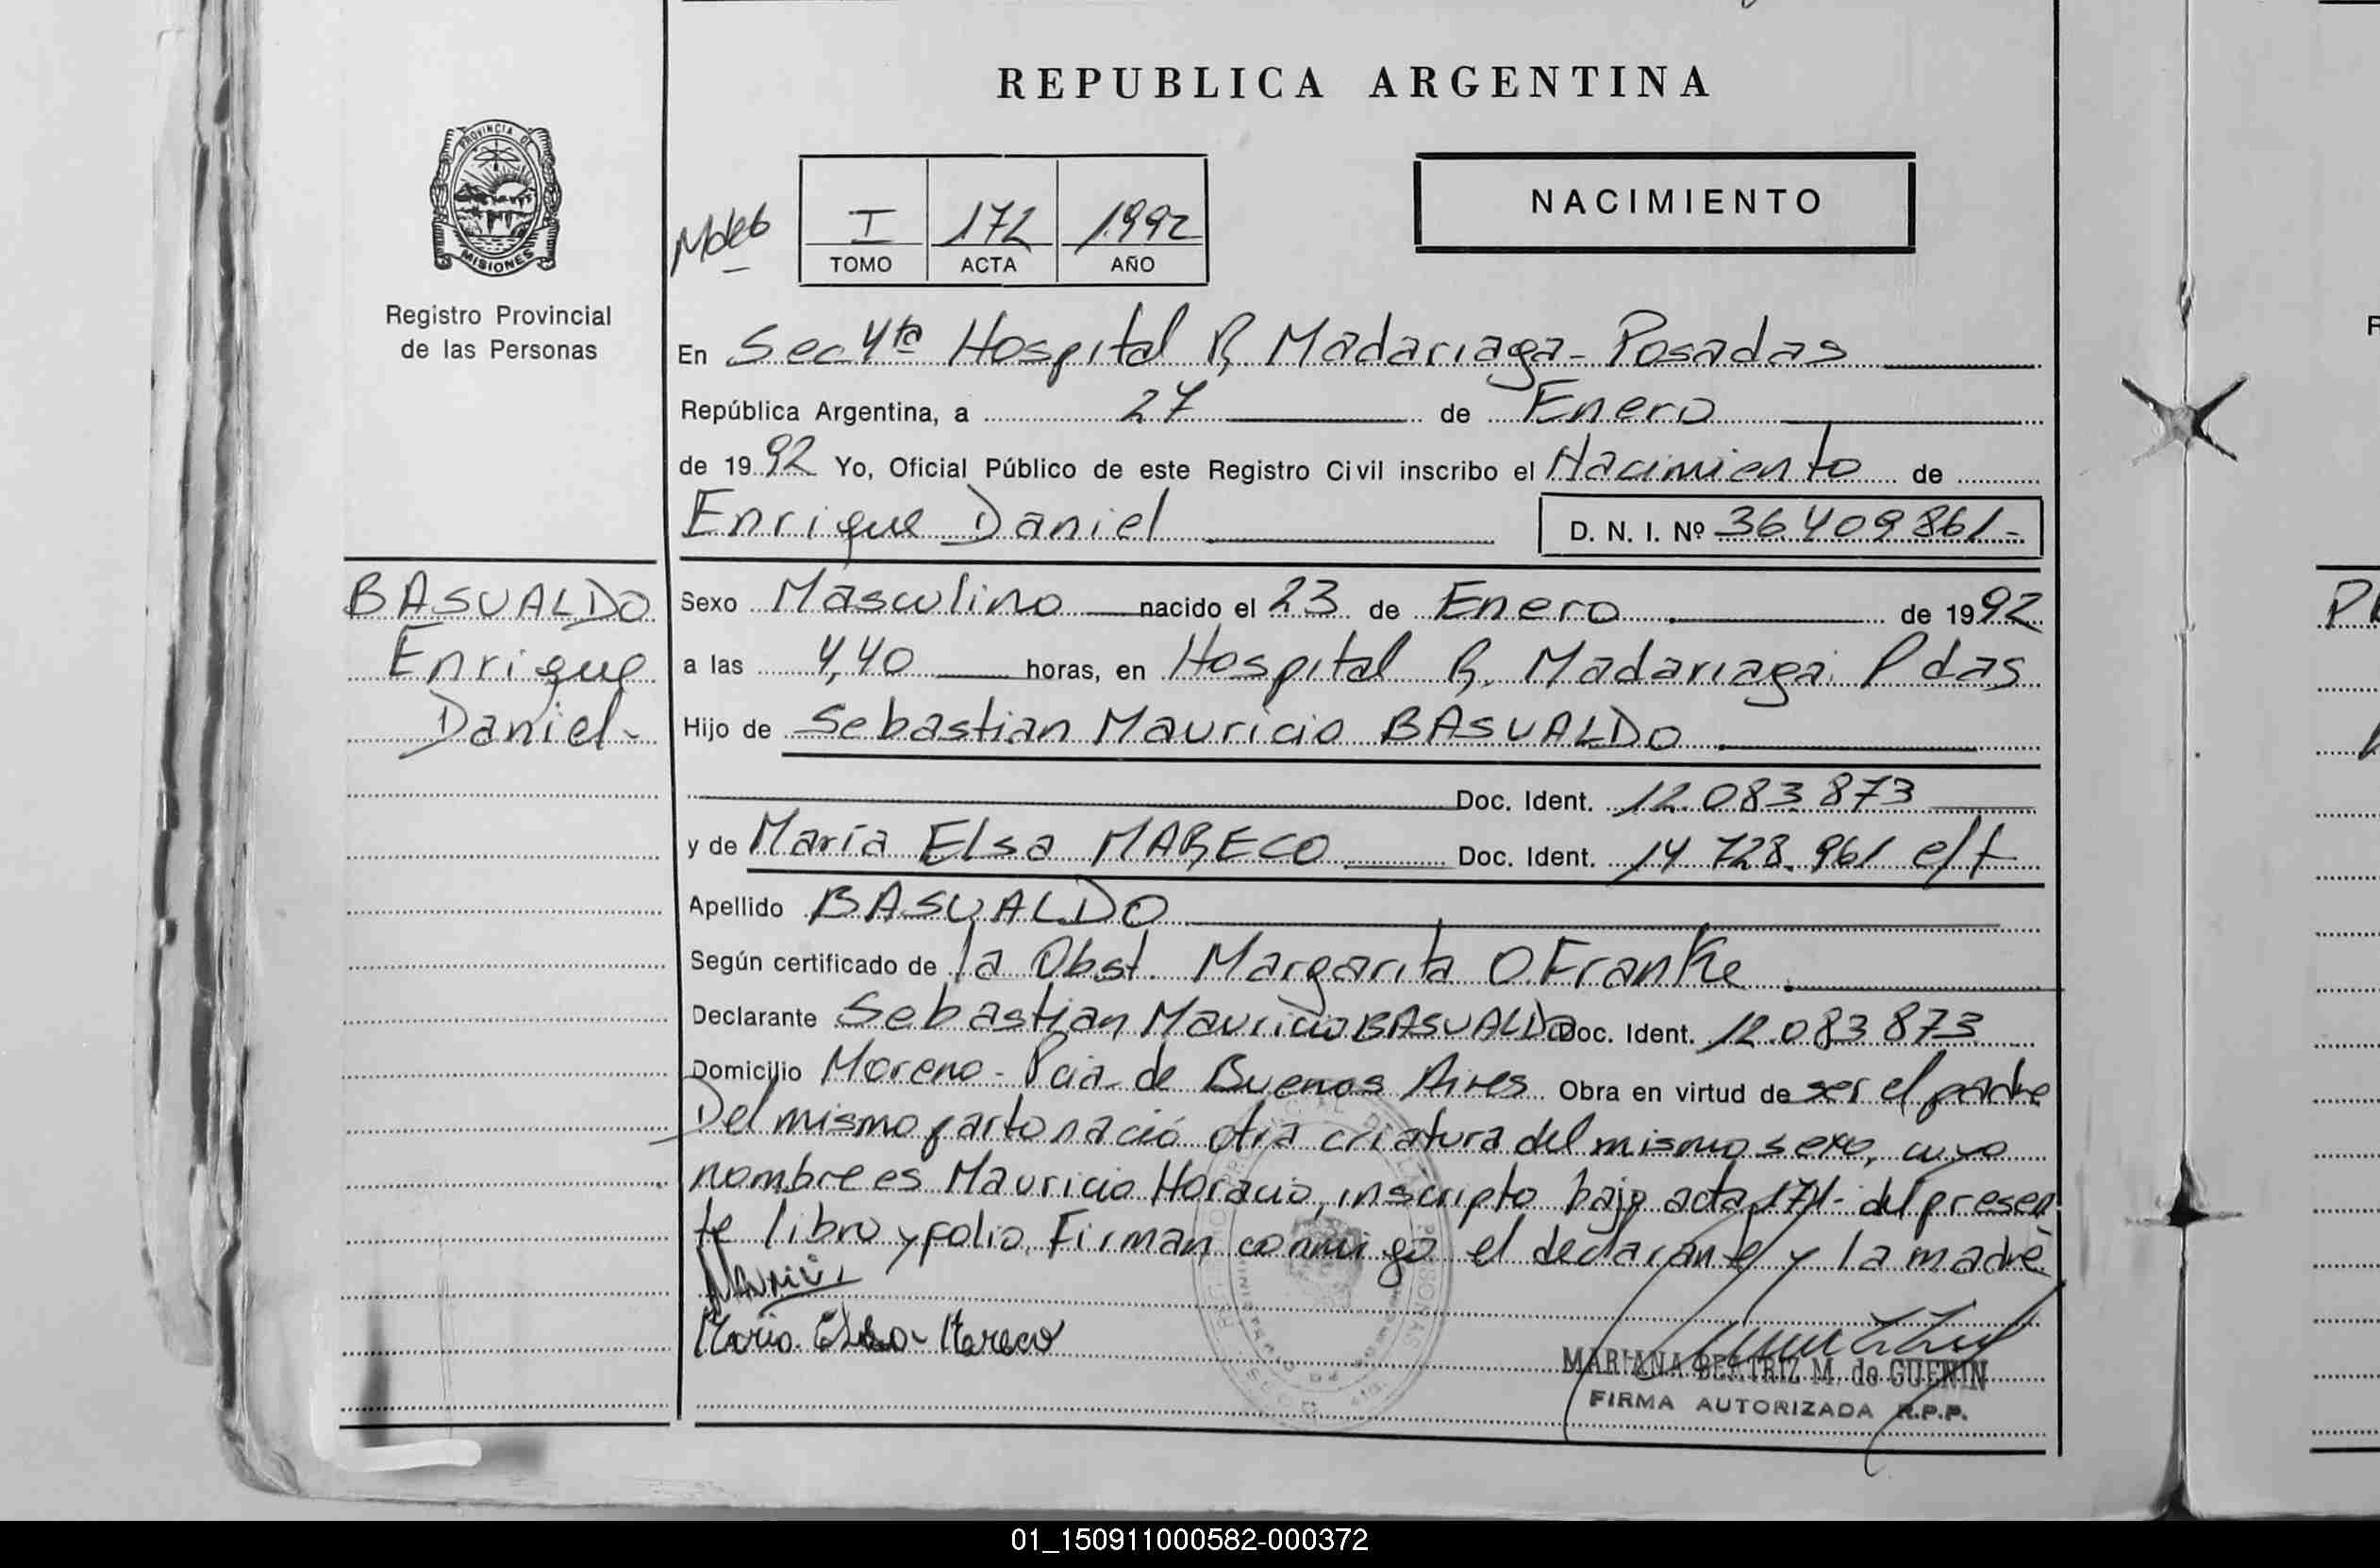 REPUBLICA ARGENTINA
PROVINCIA DE MISIONES
Registro Provincial
de las Personas
NACIMIENTO
I 172 1992
TOMO ACTA AÑO
En Sec 4ta Hospital R, Madariaga - Posadas
República Argentina, a 27 de Enero
de 19 92 Yo, Oficial Público de este Registro Civil inscribo el Nacimiento de
Enrique Daniel D. N. I. Nº 36.409.861-
BASUALDO
Enrique
Daniel-
Sexo Masculino nacido el 23 de Enero de 1992
a las 4,40 horas, en Hospital R, Madariaga Pdas
Hijo de Sebastian Mauricio BASUALDO
Doc. Ident. 12.083.873
y de María Elsa MARECO Doc. Ident. 14.728.961 e/t
Apellido BASUALDO
Según certificado de la Obst. Margarita O. Franke
Declarante Sebastian Mauricio BASUALDO Doc. Ident. 12.083.873
Domicilio Moreno - Pcia de Buenos Aires Obra en virtud de ser el padre
Del mismo parto nació otra criatura del mismo sexo, cuyo
nombre es Mauricio Horacio, inscripto bajo acta 171- del presen
te libro y folio. Firman conmigo el declarante y la madre
Maria Elsa Mareco
MARIANA BEATRIZ M. de GUENIN
FIRMA AUTORIZADA R.P.P.
01_150911000582-000372